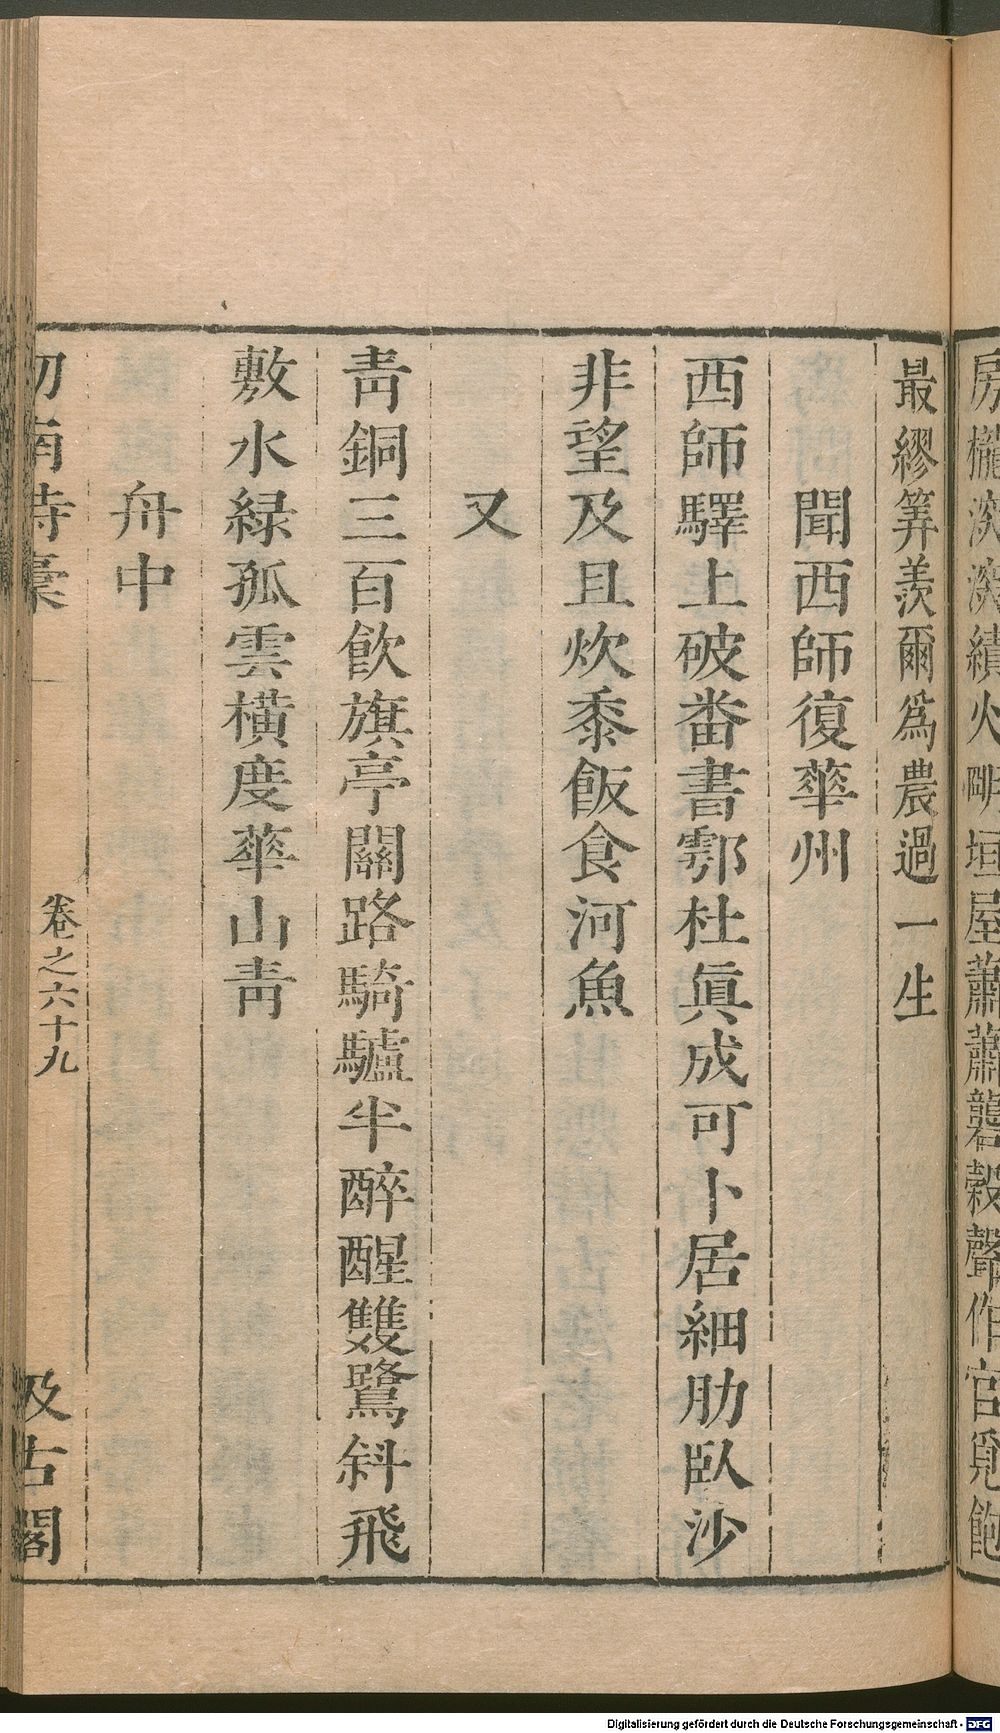 房櫳淡淡績火明垣屋蕭蕭礱穀聲作官覓飽
最繆筭羨爾爲農過一生
聞西師復華州
西師驛上破番書鄠杜眞成可卜居細肋臥沙
非望及且炊黍飯食河魚
又
靑銅三百飮旗亭關路騎驢半醉醒雙鷺斜飛
敷水緑孤雲橫度華山靑
舟中
劒南詩稾
卷之六十九
汲古閣
Digitalisierung gefördert durch die Deutsche Forschungsgemeinschaft - DFG